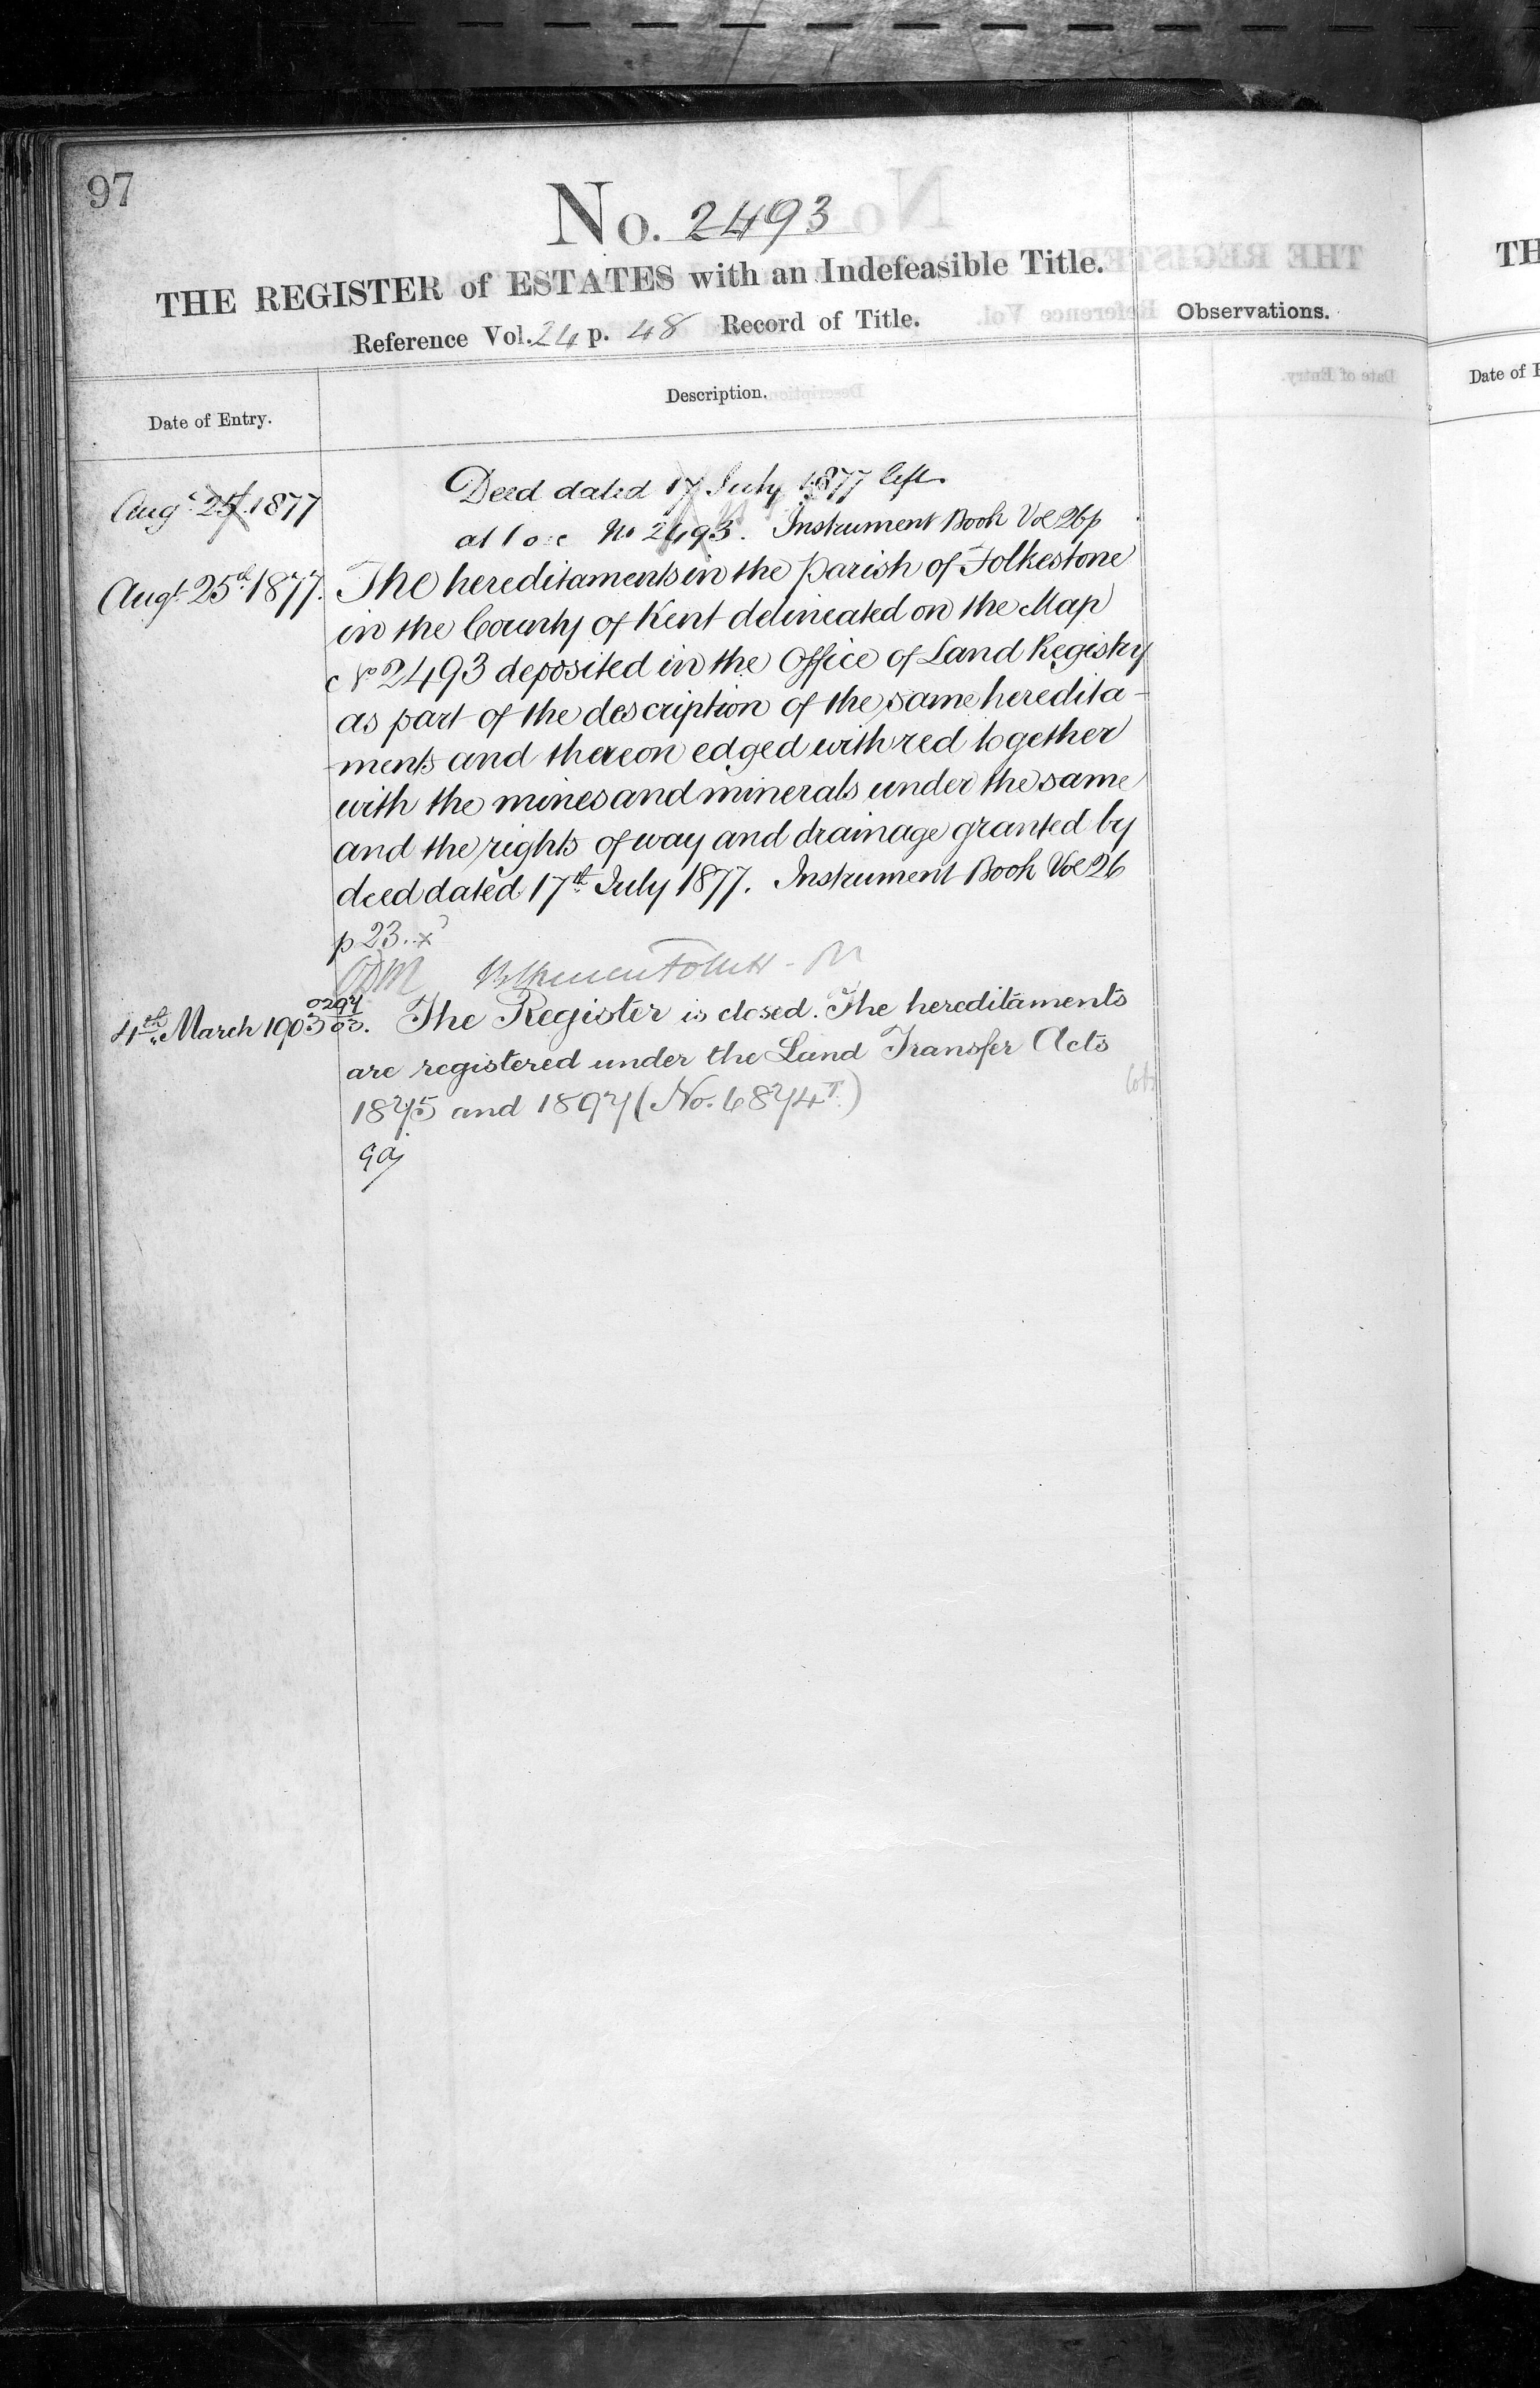 97
No. 2493
THE REGISTER of ESTATES with an Indefeasible Title.
Reference Vol. 24 p. 48 Record of Title.
Observations.
Date of Entry.
Description.
Augt 25th 1877
Deed dated 17 July 1877 left
No 2493. Instrument Book Vol 26 p
Augt 25th 1877.
The hereditaments in the Parish of Folkestone
in the County of Kent delineated on the Map
No 2493 deposited in the Office of Land Registry
as part of the description of the same heredita-
-ments and thereon edged with red together
with the mines and minerals under the same
and the rights of way and drainage granted by
deed dated 17th July 1877. Instrument Book Vol 26
p 23. x
4th March 1903
0297/03.
The Register is closed. The hereditaments
are registered under the Land Transfer Acts
1875 and 1897 (No. 6874T)
TH
Date of E